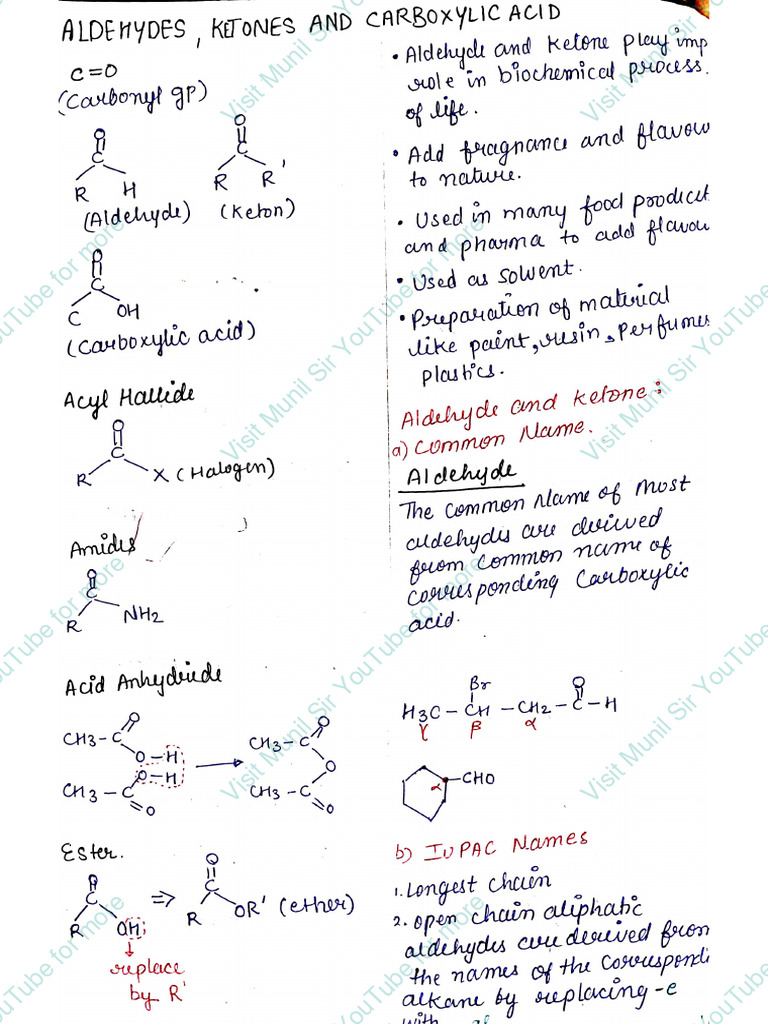 ALDEHYDES, KETONES AND CARBOXYLIC ACID
C=O
(Carbonyl gp)
O
C
R H
(Aldehyde)
O
C
R R'
(Keton)
O
C
C OH
(Carboxylic acid)
Acyl Hallide
O
C
R X (Halogen)
Amides
O
C
R NH2
Acid Anhydride
CH3-C O
O-H
O-H
CH3-C O
CH3-C O
O
CH3-C O
Ester.
O
C
R OH
replace
by R'
⇒
O
C
R OR' (ether)
• Aldehyde and Ketone play imp
role in biochemical process.
of life.
• Add fragnance and flavou
to nature.
• Used in many food product
and pharma to add flavou
• Used as solvent.
• Preparation of material
like paint, resin, perfumes
plastics.
Aldehyde and Ketone:
a) Common Name.
Aldehyde
The Common Name of Most
aldehydes are derived
from Common name of
corresponding Carboxylic
acid.
Br O
H3C-CH-CH2-C-H
γ β α
α CHO
b) IUPAC Names
1. Longest chain
2. open chain aliphatic
aldehydes are derived from
the names of the correspondi
alkane by replacing -e
with
Visit Munil Sir YouTube for more